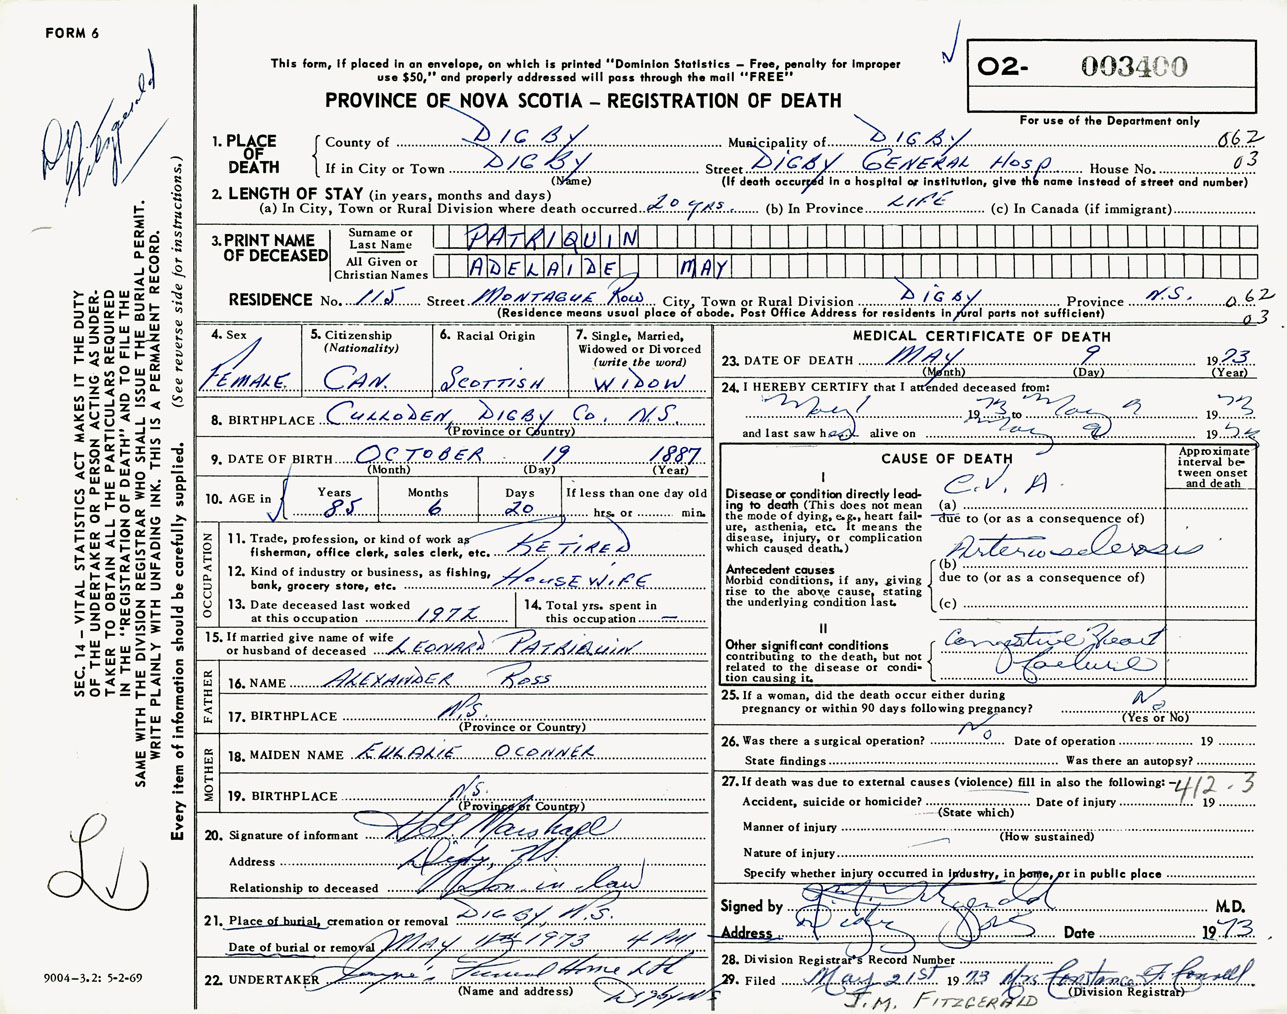 FORM 6
Dr Fitzgerald
This form, if placed in an envelope, on which is printed "Dominion Statistics – Free, penalty for improper
use $50," and properly addressed will pass through the mail "FREE"
PROVINCE OF NOVA SCOTIA – REGISTRATION OF DEATH
O2- 003400
For use of the Department only
1. PLACE OF DEATH County of DIGBY Municipality of DIGBY 062
If in City or Town DIGBY Street DIGBY GENERAL HOSP. House No. 03
(Name) (If death occurred in a hospital or institution, give the name instead of street and number)
2. LENGTH OF STAY (in years, months and days)
(a) In City, Town or Rural Division where death occurred 20 yrs. (b) In Province LIFE (c) In Canada (if immigrant)
3. PRINT NAME OF DECEASED Surname or Last Name PATRIQUIN
All Given or Christian Names ADELAIDE MAY
RESIDENCE No. 115 Street MONTAGUE ROW City, Town or Rural Division DIGBY Province N.S. 062
(Residence means usual place of abode. Post Office Address for residents in rural parts not sufficient) 03
4. Sex FEMALE
5. Citizenship (Nationality) CAN.
6. Racial Origin SCOTTISH
7. Single, Married, Widowed or Divorced (write the word) WIDOW
8. BIRTHPLACE CULLODEN, DIGBY Co. N.S.
(Province or Country)
9. DATE OF BIRTH OCTOBER 19 1887
(Month) (Day) (Year)
10. AGE in Years 85 Months 6 Days 20 If less than one day old hrs. or min.
OCCUPATION
11. Trade, profession, or kind of work as fisherman, office clerk, sales clerk, etc. RETIRED
12. Kind of industry or business, as fishing, bank, grocery store, etc. HOUSEWIFE
13. Date deceased last worked at this occupation 1972
14. Total yrs. spent in this occupation —
15. If married give name of wife or husband of deceased LEONARD PATRIQUIN
FATHER
16. NAME ALEXANDER ROSS
17. BIRTHPLACE N.S.
(Province or Country)
MOTHER
18. MAIDEN NAME EULALIE OCONNER
19. BIRTHPLACE N.S.
(Province or Country)
20. Signature of informant Marshall
Address Digby, N.S.
Relationship to deceased Son in law
21. Place of burial, cremation or removal DIGBY, N.S.
Date of burial or removal MAY 11th 1973 4 PM
22. UNDERTAKER Jayne's Funeral Home Ltd
(Name and address) Digby NS
MEDICAL CERTIFICATE OF DEATH
23. DATE OF DEATH MAY 9 1973
(Month) (Day) (Year)
24. I HEREBY CERTIFY that I attended deceased from:
May 1 1973 to May 9 1973
and last saw her alive on May 9 1973
CAUSE OF DEATH
Approximate interval between onset and death
I
Disease or condition directly leading to death (This does not mean the mode of dying, e.g., heart failure, asthenia, etc. It means the disease, injury, or complication which caused death.)
(a) C.V.A.
due to (or as a consequence of)
Antecedent causes
Morbid conditions, if any, giving rise to the above cause, stating the underlying condition last.
(b) Arteriosclerosis
due to (or as a consequence of)
(c)
II
Other significant conditions
contributing to the death, but not related to the disease or condition causing it.
Congestive Heart
failure
25. If a woman, did the death occur either during pregnancy or within 90 days following pregnancy? No
(Yes or No)
26. Was there a surgical operation? No Date of operation 19
State findings Was there an autopsy?
27. If death was due to external causes (violence) fill in also the following: 412.3
Accident, suicide or homicide? Date of injury 19
(State which)
Manner of injury
(How sustained)
Nature of injury
Specify whether injury occurred in industry, in home, or in public place
Signed by Fitzgerald M.D.
Address Digby Date 1973
28. Division Registrar's Record Number
29. Filed May 21st 1973 Mrs Constance F. Connell
(Division Registrar)
J.M. FITZGERALD
SEC. 14 – VITAL STATISTICS ACT MAKES IT THE DUTY
OF THE UNDERTAKER OR PERSON ACTING AS UNDER-
TAKER TO OBTAIN ALL THE PARTICULARS REQUIRED
IN THE "REGISTRATION OF DEATH" AND TO FILE THE
SAME WITH THE DIVISION REGISTRAR WHO SHALL ISSUE THE BURIAL PERMIT.
WRITE PLAINLY WITH UNFADING INK. THIS IS A PERMANENT RECORD.
Every item of information should be carefully supplied. (See reverse side for instructions.)
9004–3.2: 5-2-69